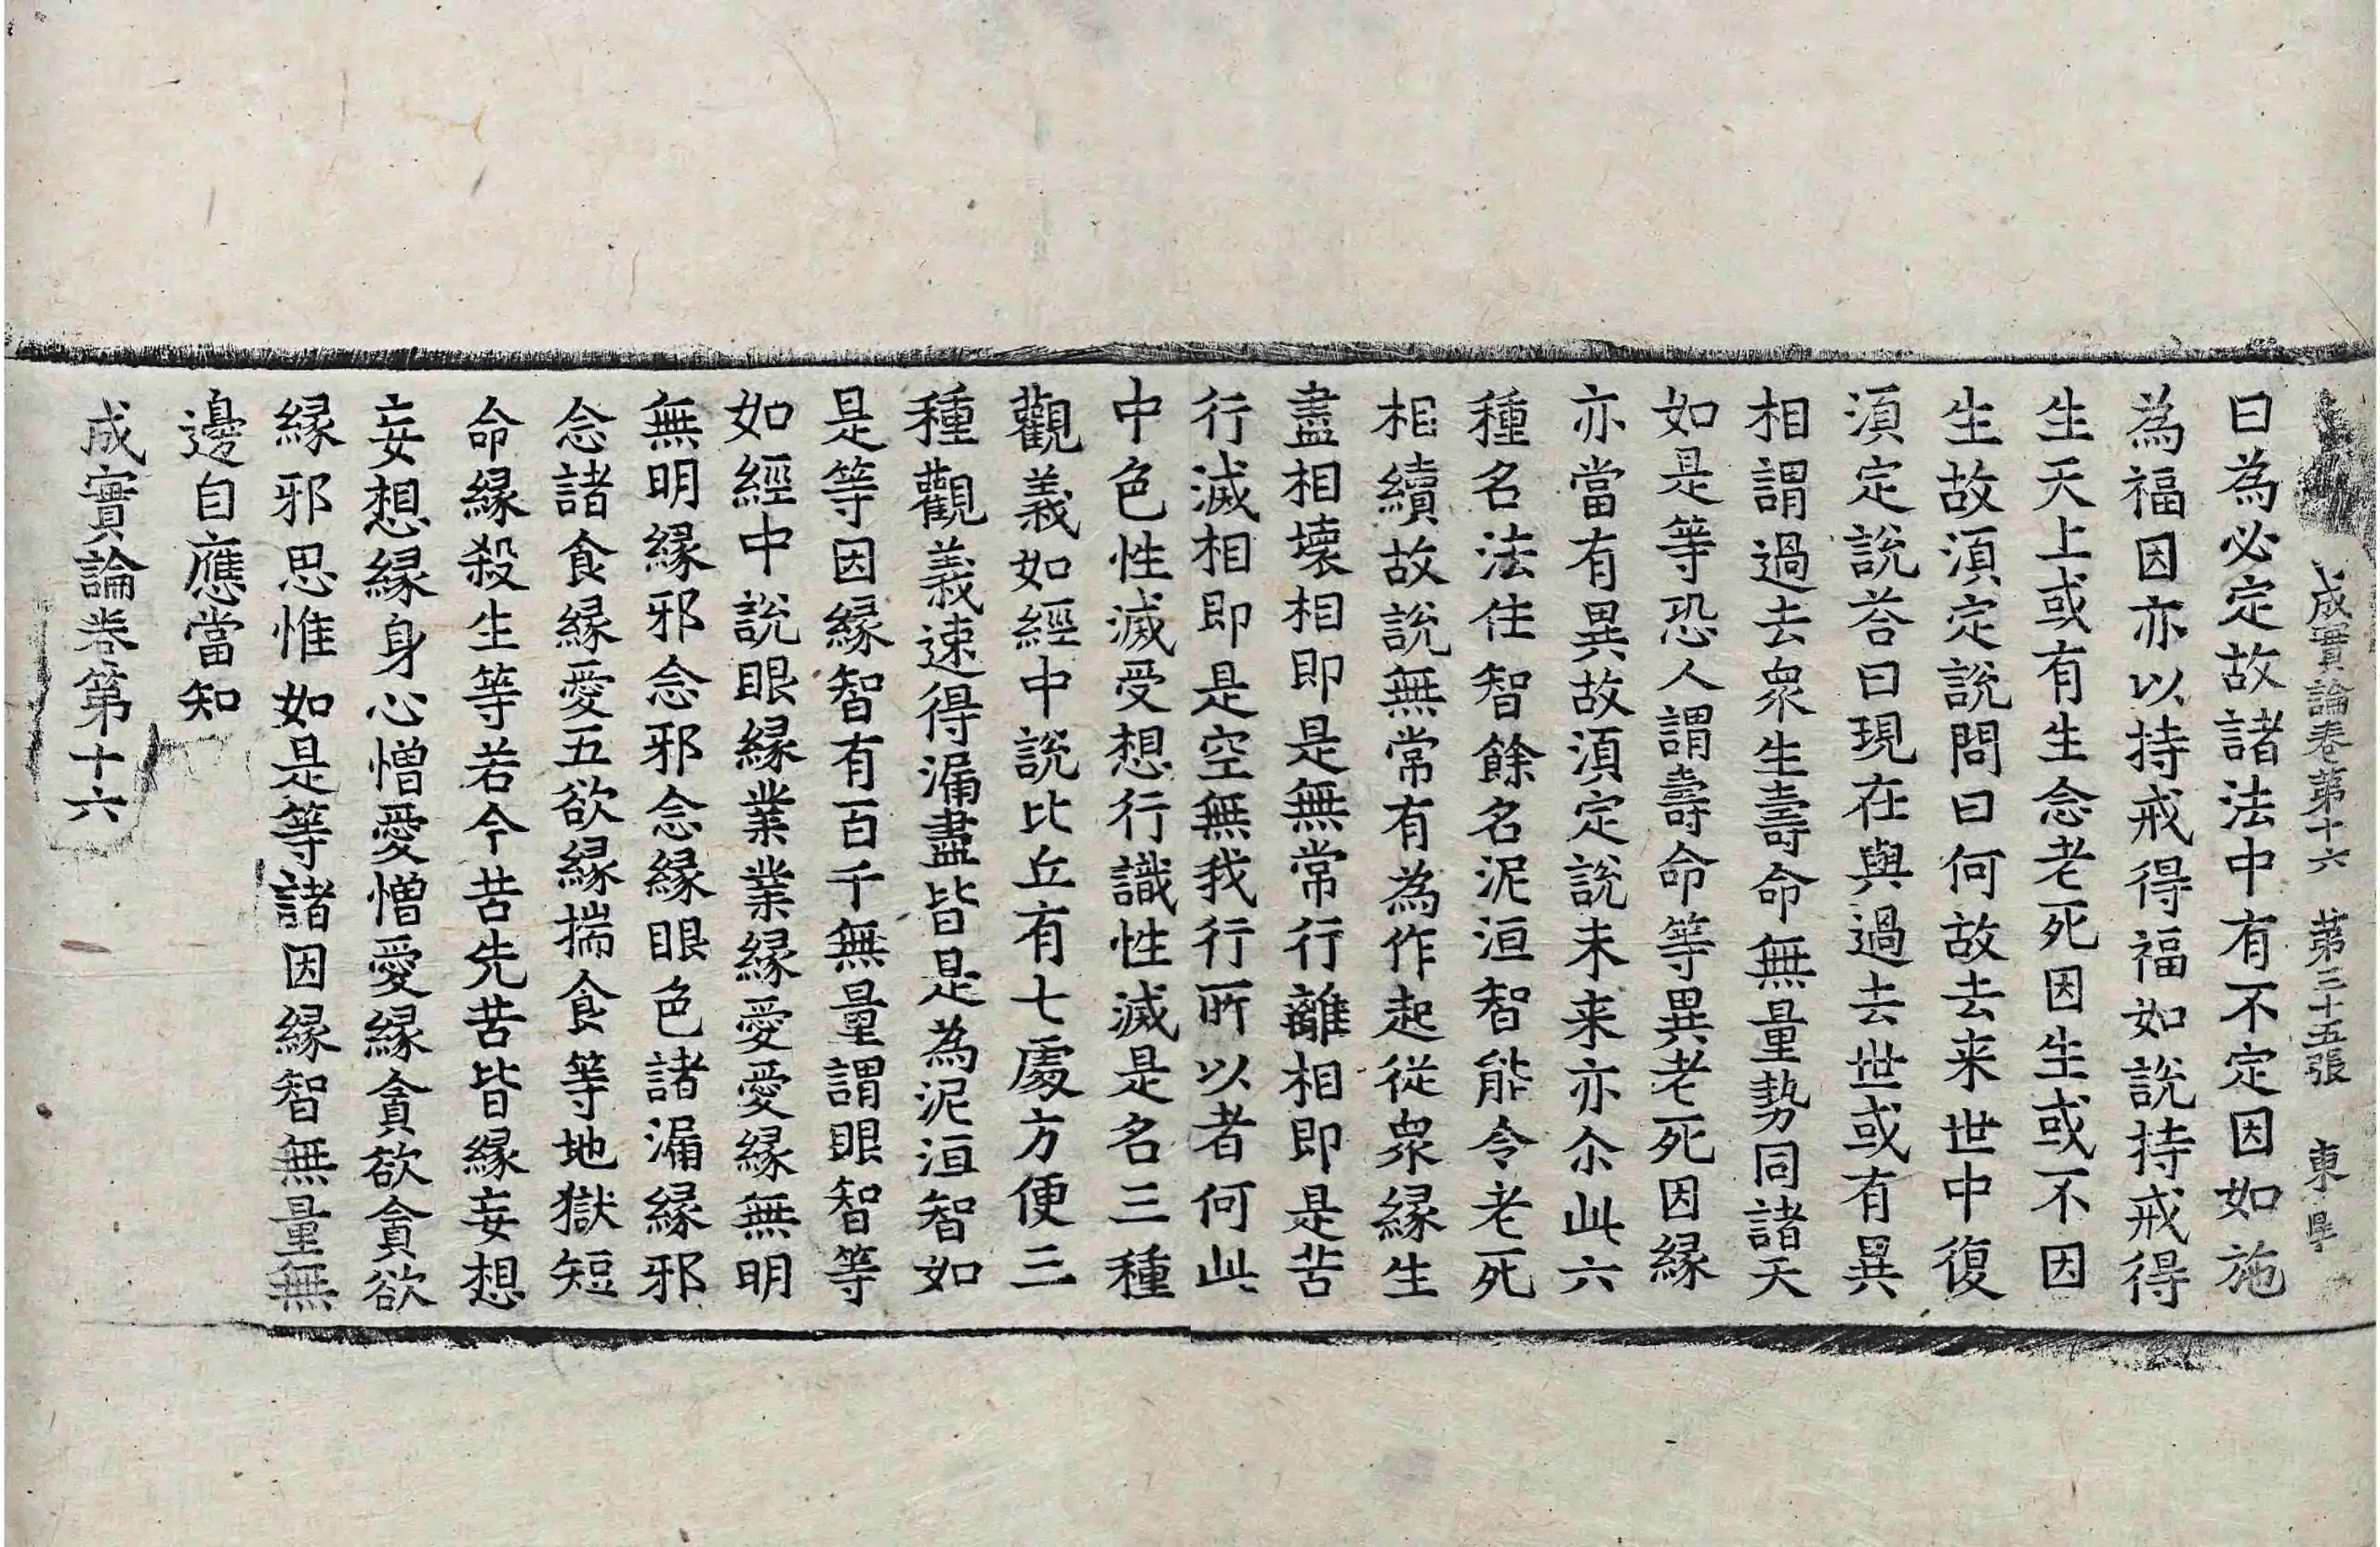 成實論卷第十六 第三十五張 東
曰為必定故諸法中有不定因如施
為福因亦以持戒得福如說持戒得
生天上或有生念老死因生或不因
生故湏定說問曰何故去来世中復
湏定說荅曰現在與過去世或有異
相謂過去衆生壽命無量勢同諸天
如是等恐人謂壽命等異老死因縁
亦當有異故湏定說未来亦尒此六
種名法住智餘名泥洹智能令老死
相續故說無常有為作起從衆縁生
盡相壊相即是無常行離相即是苦
行滅相即是空無我行所以者何此
中色性滅受想行識性滅是名三種
觀義如經中說比丘有七處方便三
種觀義速得漏盡皆是為泥洹智如
是等因縁智有百千無量謂眼智等
如經中說眼縁業業縁愛愛縁無明
無明縁邪念邪念縁眼色諸漏縁邪
念諸食縁愛五欲縁揣食等地獄短
命縁殺生等若今苦先苦皆縁妄想
妄想縁身心憎愛憎愛縁貪欲貪欲
縁邪思惟如是等諸因縁智無量無
邊自應當知
成實論卷第十六